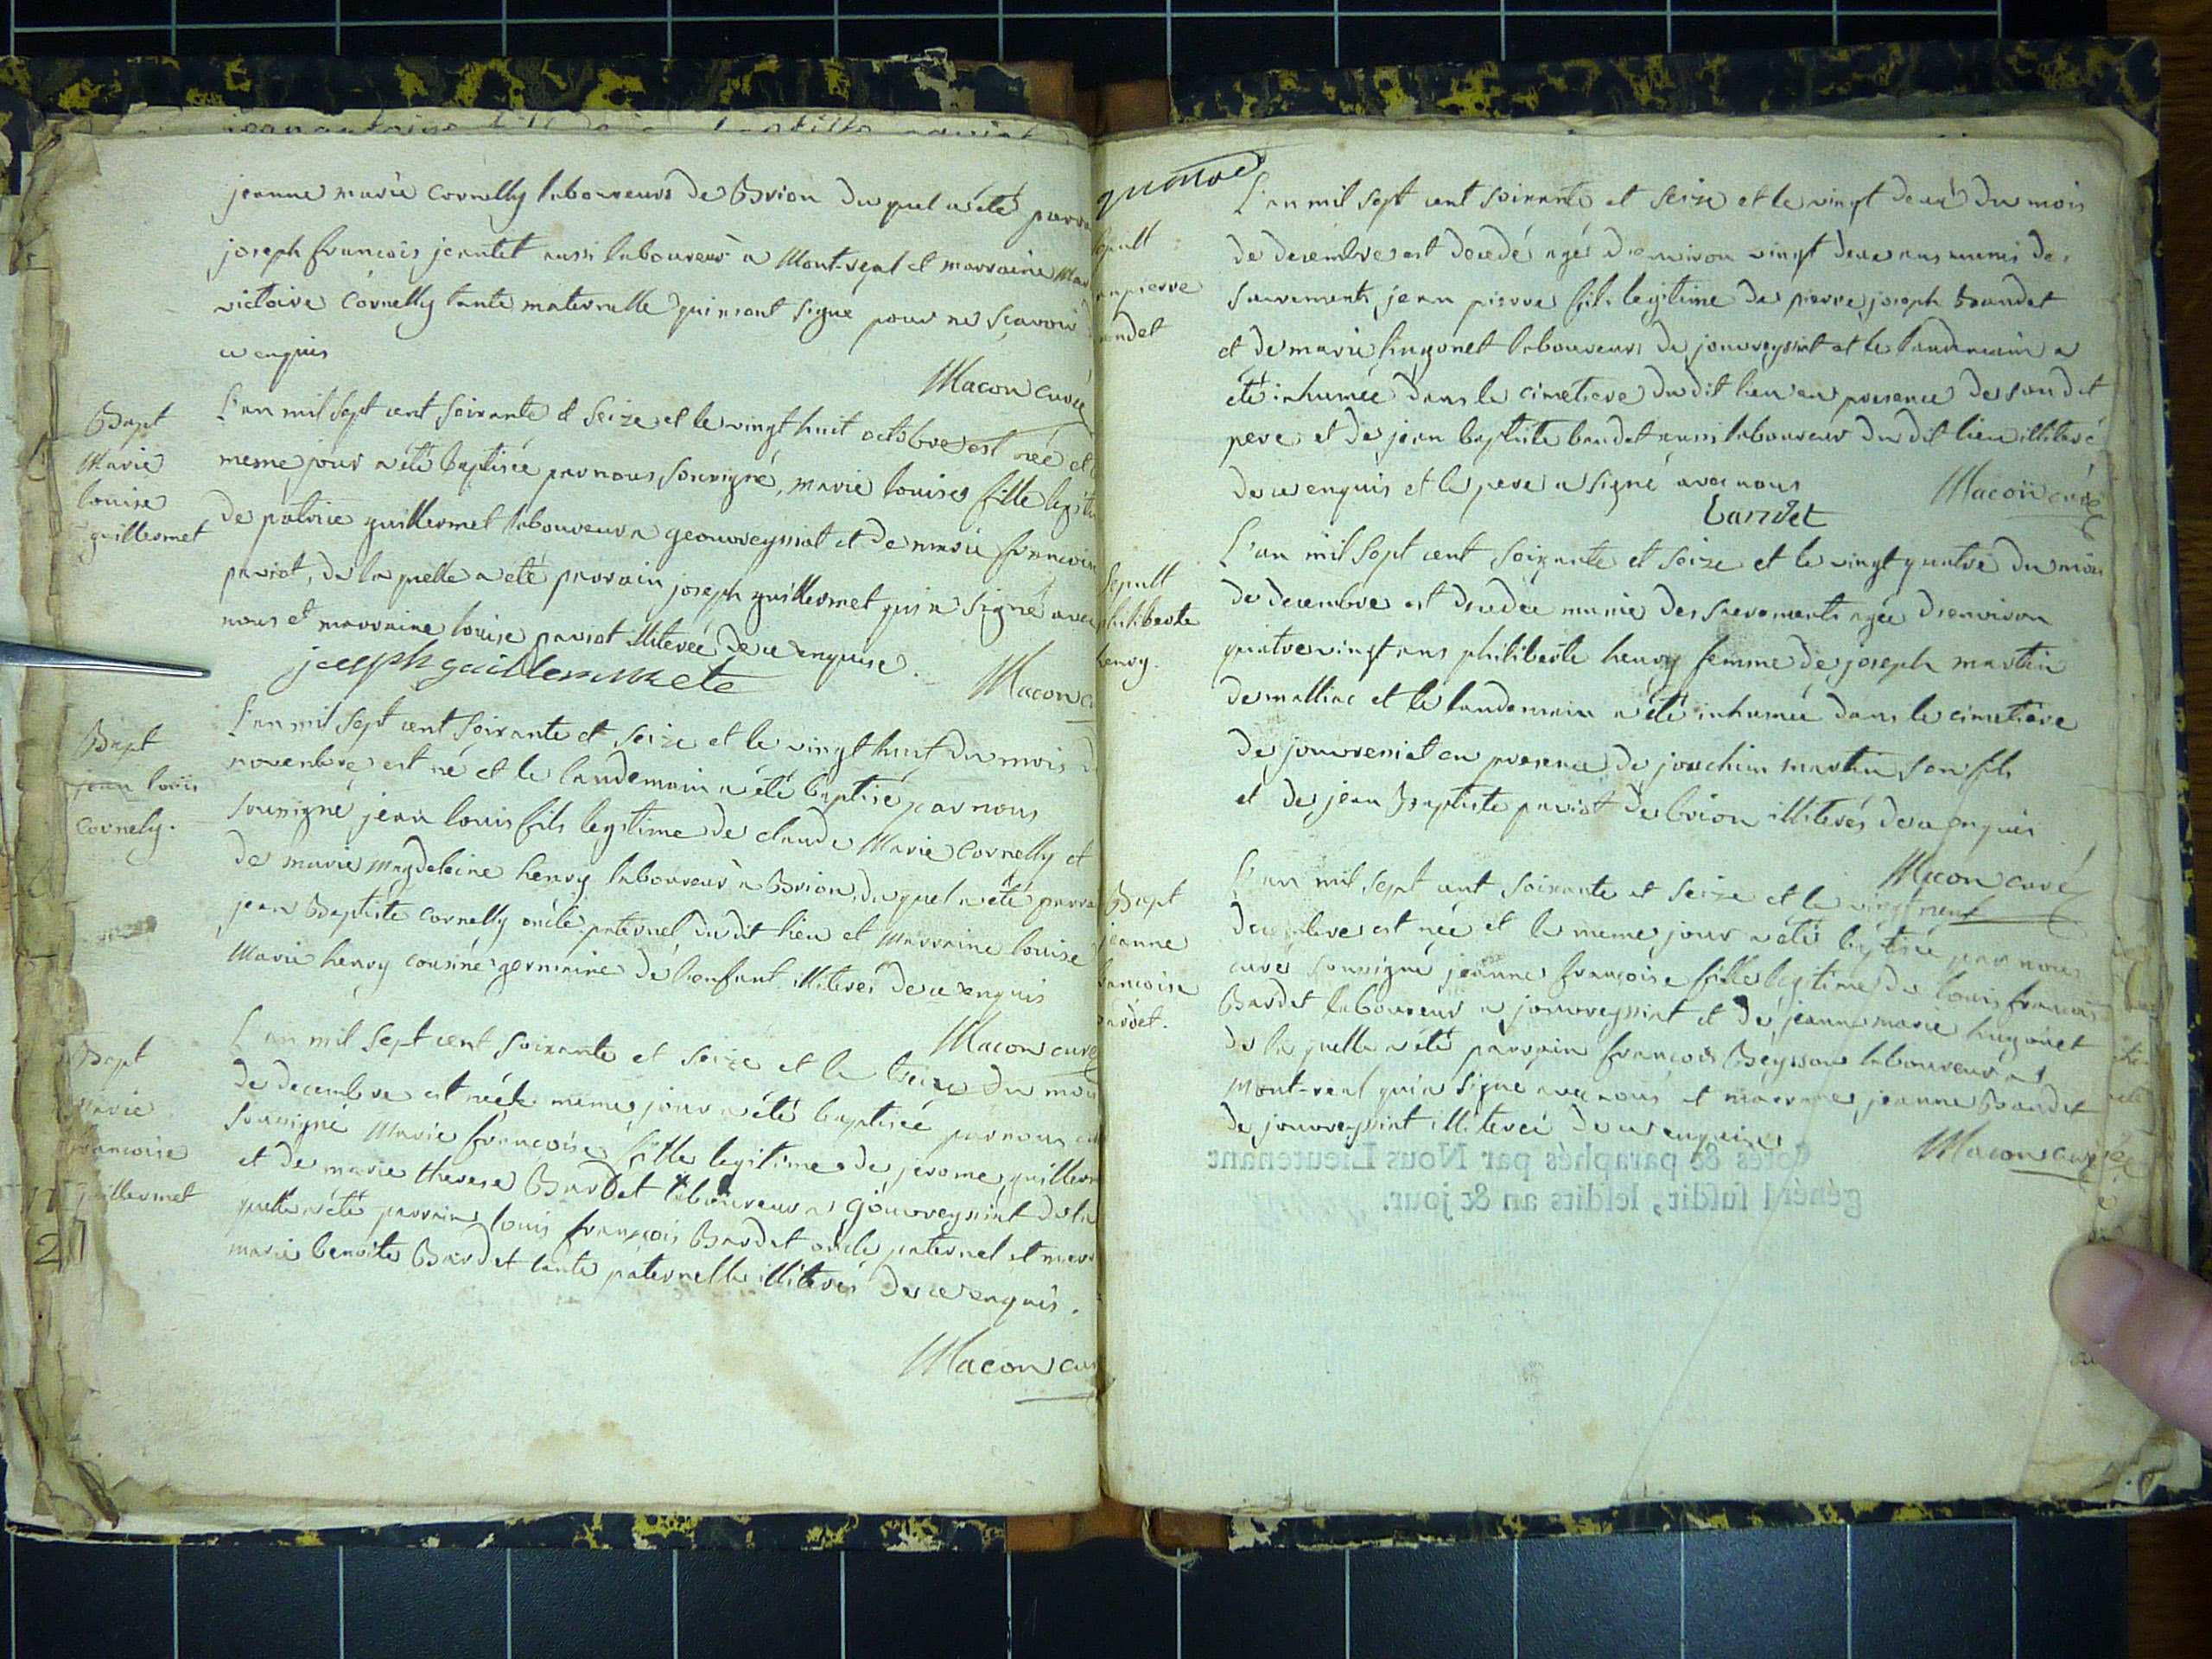 jeanne marie Cornelly laboureurs de Brion du quel a été parra
joseph francois jeantet aussi laboureur à Mont-real et marraine Mar
victoire Cornelly tante maternelle qui n'ont signé pour ne sçavoir
ce enquis
Macon curé
Bapt
Marie
louise
guillermet
L'an mil sept cent soixante et seize et le vingt huit octobre est née et l
meme jour a été baptisée par nous soussigné, marie louise fille legiti
de patrice guillermet laboureur a geouvreyssiat et de marie francoise
paviot, de la quelle a été parrain joseph guillermet qui a signé avec
nous et marraine louise paviot illiterée de ce enquise.
joseph guillermete
Macon c
Bapt
jean louis
Cornely.
L'an mil sept cent soixante et seize et le vingt huit du mois d
novembre est né et le landemain a été baptisé par nous
soussigné jean louis fils legitime de claude Marie Cornelly et
de marie magdeleine henry laboureur à Brion, du quel a été parra
jean Baptiste Cornelly oncle paternel du dit lieu et Marraine louise
Marie henry cousine germaine de l'enfant illiterés de ce enquis
Macon curé
Bapt
Marie
francoise
guillermet
L'an mil sept cent soixante et seize et le treize du mois
de decembre est née le meme jour a été baptisée par nous cu
soussigné Marie francoise fille legitime de jerome guillerm
et de marie therese Bardet laboureur a Gouvreyssiat de la
quelle a été parrain louis françois Bardet oncle paternel et marr
marie benoite Bardet tante paternelle illiterés de ce enquis.
Macon cur
quatre
Sepult
jean pierre
andet
L'an mil sept cent soixante et seize et le vingt deux du mois
de decembre est decedé agé d'environ vingt deux ans munis des
sacrements, jean pierre fils legitime de pierre joseph Baudet
et de marie hugonet laboureurs de jouvreyssiat et le landemain a
été inhumée dans le cimetiere du dit lieu en presence de son dit
pere et de jean baptiste baudet aussi laboureur du dit lieu illiteré
de ce enquis et le pere a signé avec nous
Macon curé
Bardet
Sepult
philiberte
henry.
L'an mil sept cent soixante et seize et le vingt quatre du mois
de decembre est decedée munie des sacrements agée d'environ
quatre vingt ans philiberte henry femme de joseph martin
de malliac et le landemain a été inhumée dans le cimetiere
de jouvresiat en presence de joachim martin son fils
et de jean Baptiste paviot de brion illiterés de ce enquis
Macon curé
Bapt
jeanne
francoise
bardet.
L'an mil sept cent soixante et seize et le vingt neuf
decembre est née et le meme jour a été baptisée par nous
curé soussigné jeanne françoise fille legitime de louis françois
Bardet laboureur a jouvreyssiat et de jeanne marie hugonet
de la quelle a été parrain françois Beysson laboureur a
Mont-real qui a signé avec nous et marraine jeanne Baudet
de jouvreyssiat illiterée de ce enquise
Macon curé
Cotés & paraphés par Nous Lieutenant
généŕl susdit, lesdits an & jour.
21